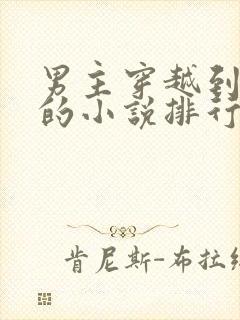 男主穿越到
的小说排行
肯尼斯-布拉